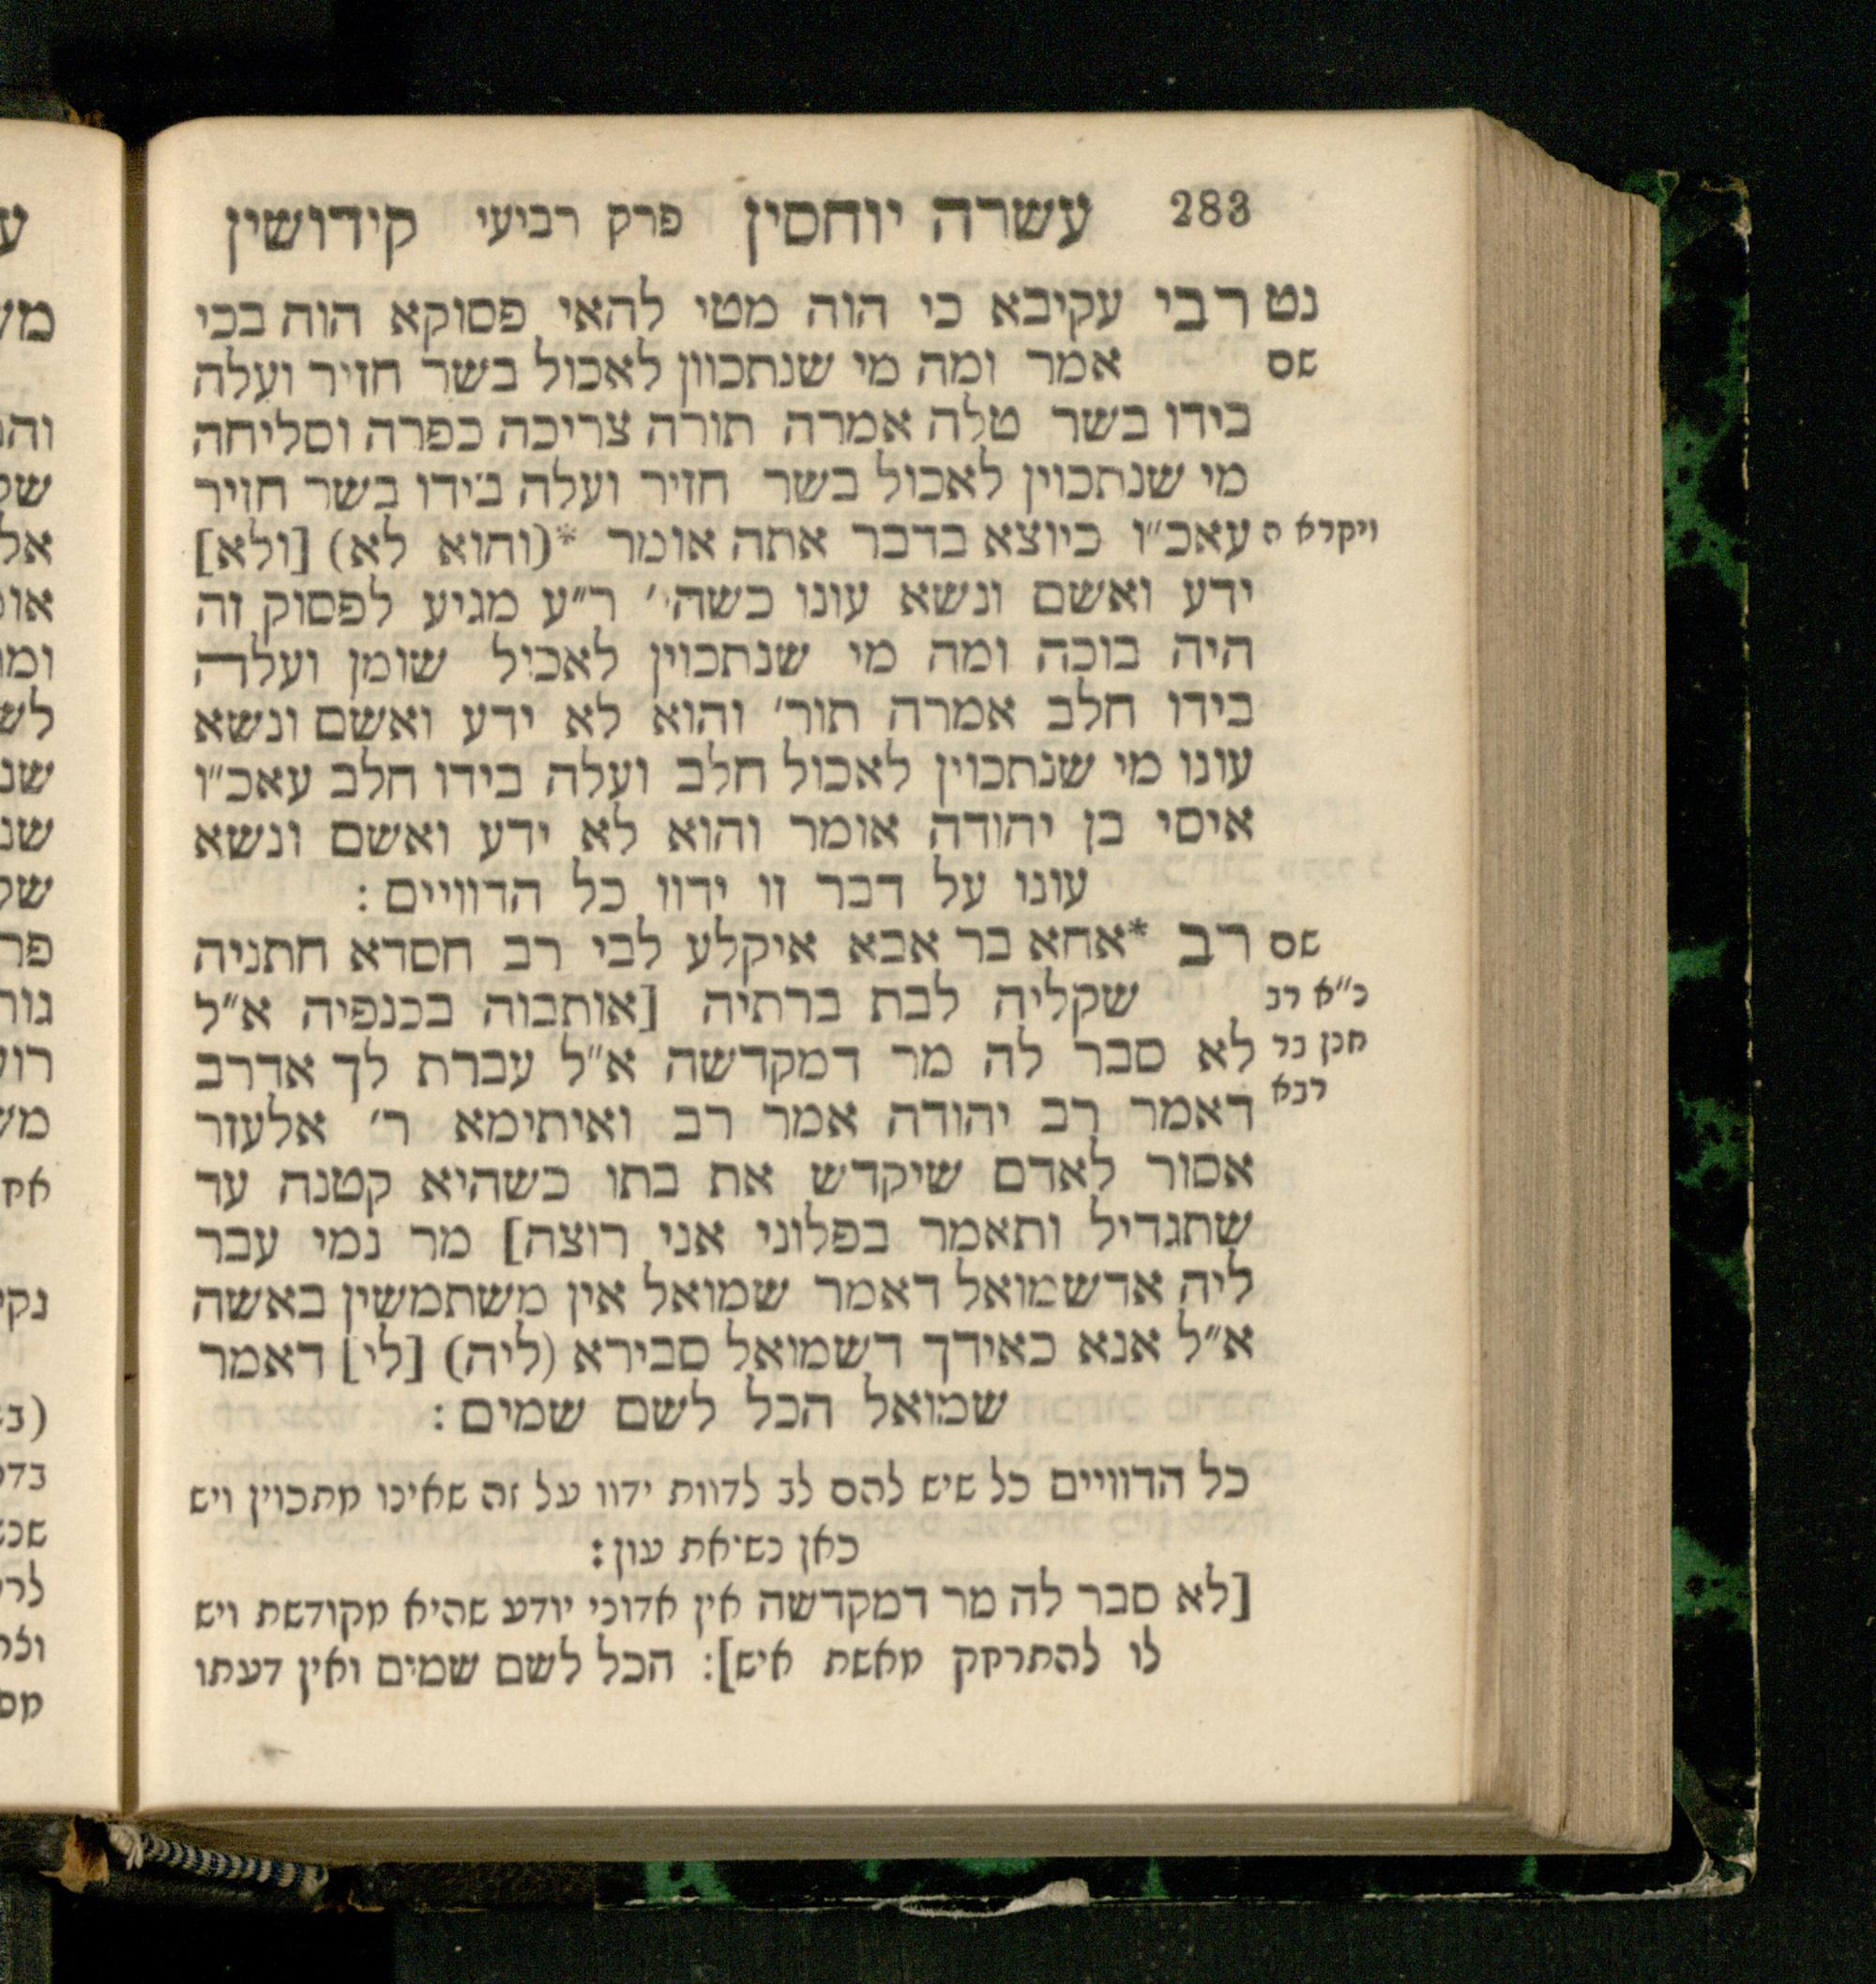 283 עשרה יוחסין פרק רביעי קידושין
נט רבי עקיבא כי הוה מטי להאי פסוקא הוה בכי
שם אמר ומה מי שנתכוון לאכול בשר חזיר ועלה
בידו בשר טלה אמרה תורה צריכה כפרה וסליחה
מי שנתכוין לאכול בשר חזיר ועלה בידו בשר חזיר
ויקרא ה עאכ״ו כיוצא בדבר אתה אומר *(והוא לא) [ולא]
ידע ואשם ונשא עונו כשהי׳ ר״ע מגיע לפסוק זה
היה בוכה ומה מי שנתכוין לאכול שומן ועלה
בידו חלב אמרה תור׳ והוא לא ידע ואשם ונשא
עונו מי שנתכוין לאכול חלב ועלה בידו חלב עאכ״ו
איסי בן יהודה אומר והוא לא ידע ואשם ונשא
עונו על דבר זו ידוו כל הדוויים :
שם רב *אחא בר אבא איקלע לבי רב חסדא חתניה
כ״א רב שקליה לבת ברתיה [אותבוה בכנפיה א״ל
חנן בר לא סבר לה מר דמקדשה א״ל עברת לך אדרב
רבא דאמר רב יהודה אמר רב ואיתימא ר׳ אלעזר
אסור לאדם שיקדש את בתו כשהיא קטנה עד
שתגדיל ותאמר בפלוני אני רוצה] מר נמי עבר
ליה אדשמואל דאמר שמואל אין משתמשין באשה
א״ל אנא כאידך דשמואל סבירא (ליה) [לי] דאמר
שמואל הכל לשם שמים :
כל הדוויים כל שיש להם לב לדוות ידוו על זה שאינו מתכוין ויש
כאן נשיאת עון :
[לא סבר לה מר דמקדשה אין אדוני יודע שהיא מקודשת ויש
לו להתרחק מאשת איש]: הכל לשם שמים ואין דעתו